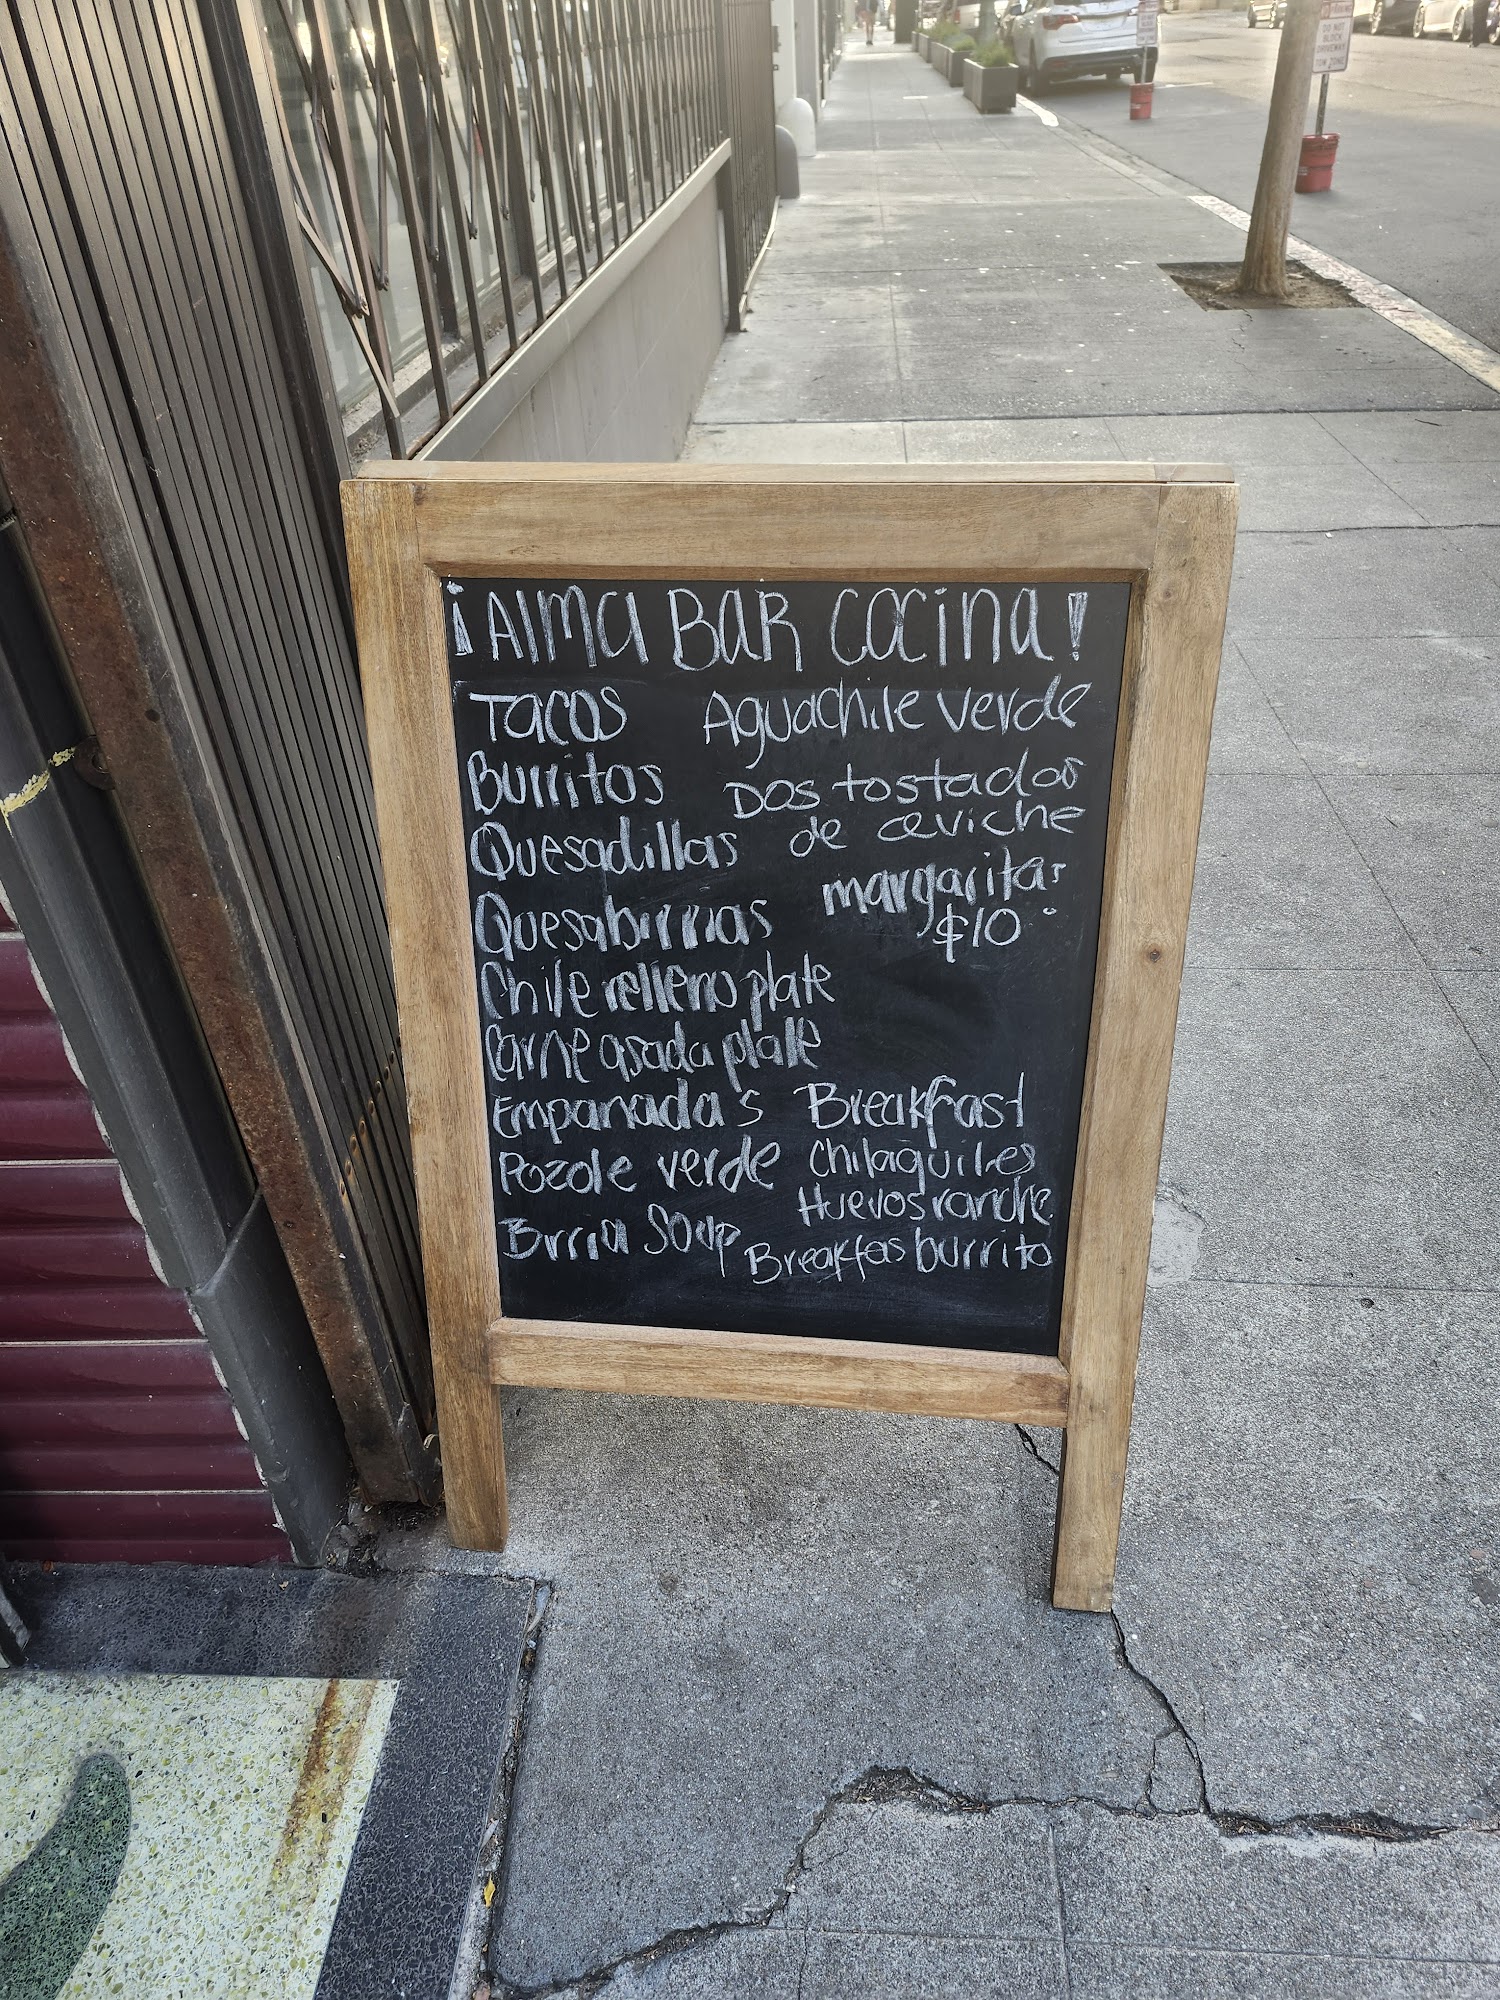 ¡Alma Bar Cocina!
Tacos
Burritos
Quesadillas
Quesabirrias
Chile relleno plate
Carne asada plate
Empanadas
Pozole verde
Birria Soup
Aguachile verde
Dos tostadas
de ceviche
margaritas
$10
Breakfast
Chilaquiles
Huevos ranche.
Breakfas burrito
DO NOT
BLOCK
DRIVEWAY
TOW ZONE